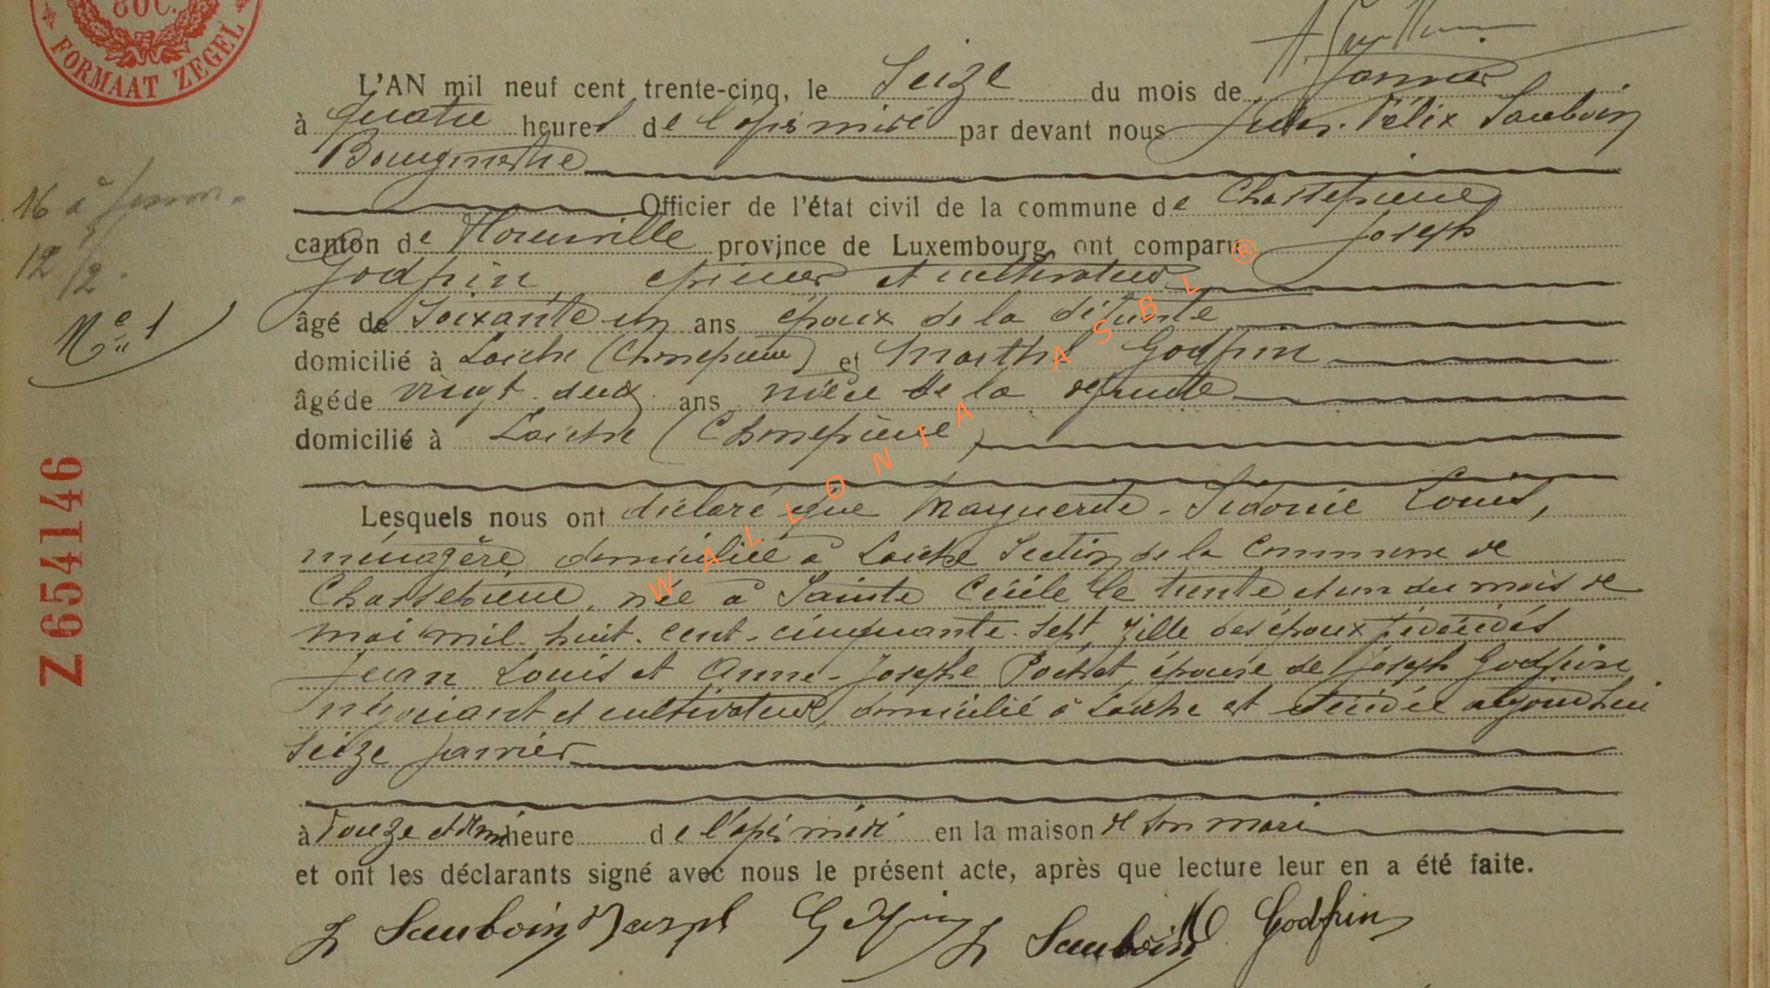 80C.
FORMAAT ZEGEL
L'AN mil neuf cent trente-cinq, le Seize du mois de Janvier
à quatre heures de l'après midi par devant nous Jules-Félix Sauboin
Bourgmestre
Officier de l'état civil de la commune de Chassepierre
canton de Florenville province de Luxembourg, ont comparu Joseph
Godfrin, épicier et cultivateur
âgé de Soixante un ans époux de la défunte
domicilié à Laiche (Chassepierre) et Marthe Godfrin
âgé de vingt-deux ans nièce de la défunte
domicilié à Laiche (Chassepierre)
Lesquels nous ont déclaré que Marguerite-Sidonie Louis,
ménagère domiciliée à Laiche Section de la Commune de
Chassepierre, née à Sainte Cécile le trente et un du mois de
mai mil-huit-cent-cinquante-sept, fille des époux décédés
Jean Louis et Anne-Josèphe Pochet, épouse de Joseph Godfrin
négociant et cultivateur, domicilié à Laiche est décédée aujourd'hui
seize janvier
à heure de l'après midi en la maison de son mari
et ont les déclarants signé avec nous le présent acte, après que lecture leur en a été faite.
J Sauboin Joseph Godfrin J Sauboin M Godfrin
16 à
12/2.
N° 1
Z 654146
WALLONIA ASBL ®